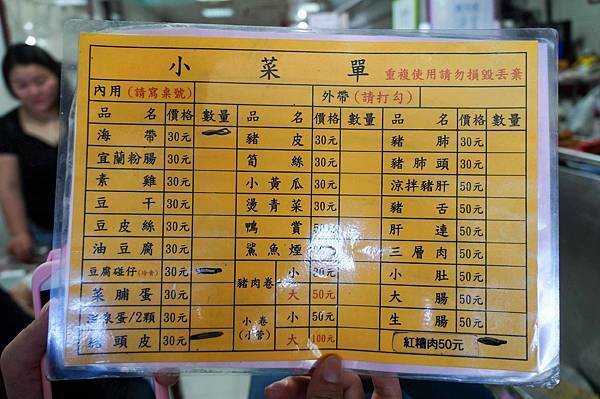 小菜單 重複使用請勿損毀丟棄
內用(請寫桌號) 外帶(請打勾)
品名 價格 數量 品名 價格 數量 品名 價格 數量
海帶 30元 豬皮 30元 豬肺 30元
宜蘭粉腸 30元 筍絲 30元 豬肺頭 30元
素雞 30元 小黃瓜 30元 涼拌豬肝 50元
豆干 30元 燙青菜 30元 豬舌 50元
豆皮絲 30元 鴨賞 50元 肝連 50元
油豆腐 30元 鯊魚煙 三層肉 50元
豆腐碰仔(冷食) 30元 豬肉卷 小 30元 小肚 50元
菜脯蛋 30元 大 50元 大腸 50元
蛋/2顆 30元 小卷(小管) 小 50元 生腸 50元
頭皮 30元 大 100元 紅糟肉50元